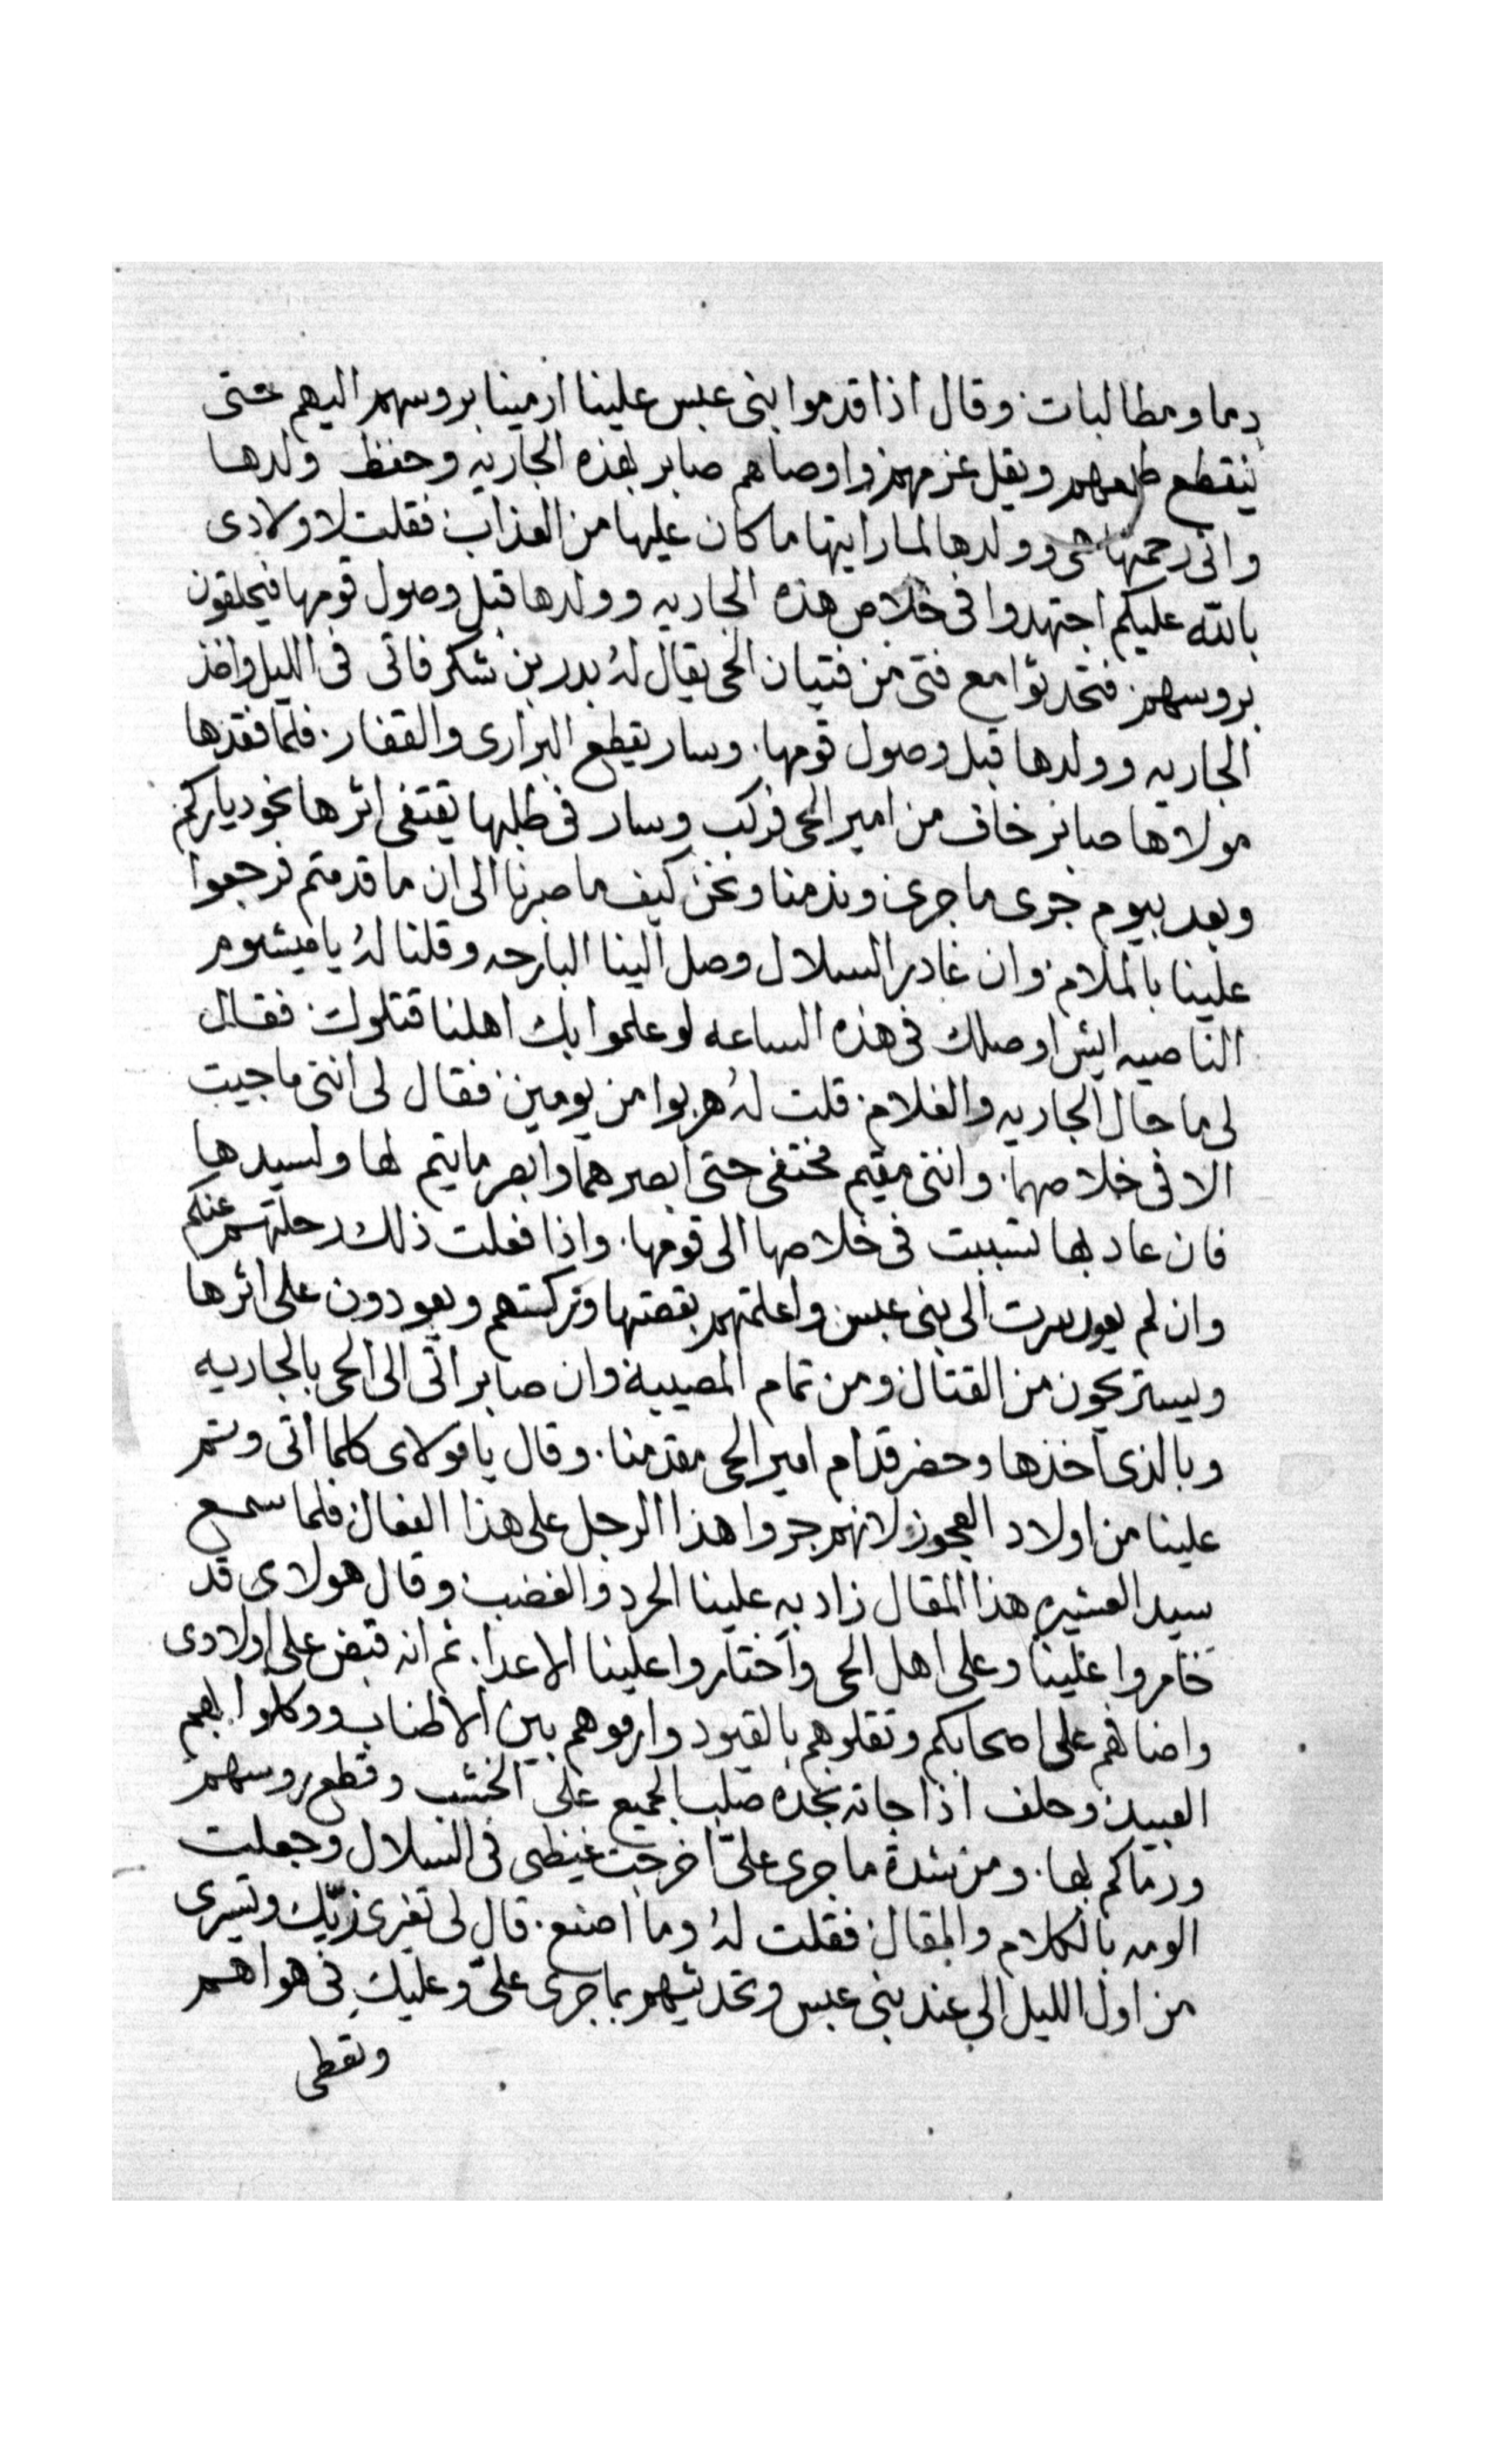 دما ومطالبات وقال اذا قدموا بنى عبس علينا ارمينا بروسهم اليهم حتى
ينقطع طمعهم ويقل عزمهم واوصاهم صابر بهذه الجاريه وحفظ ولدها
وانى رحمتها هى وولدها لما رايتها ما كان عليها من العذاب فقلت لاولادى
بالله عليكم اجتهدوا فى خلاص هذه الجاريه وولدها قبل وصول قومها فيحلقون
بروسهم فتحدثوا مع فتى من فتيان الحى يقال لهُ بدر بن شكر فاتى فى الليل واخذ
الجاريه وولدها قبل وصول قومها. وسار يقطع البرارى والقفار. فلما فقدها
مولاها صابر خاف من امير الحى فركب وسار فى طلبها يقتفى اثرها نحو دياركم
وبعد بيوم جرى ما جرى وندمنا ونحن كيف ما صبرنا الى ان ما قدمتم فرجعوا
علينا بالملام وان غادر السلال وصل الينا البارحه وقلنا لهُ يا ميشوم
الناصيه ايش اوصلك فى هذه الساعه لو علموا بك اهلنا قتلوك فقال
لى ما حال الجاريه والغلام. قلت لهُ هربوا من يومين فقال لى اننى ما جيت
الا فى خلاصهما. واننى مقيم مختفى حتى ابصرهما وابصر ما يتم لها ولسيدها
فان عاد بها تسببت فى خلاصها الى قومها. واذا فعلت ذلك رحلتهم عنكم
وان لم يعود سرت الى بنى عبس واعلمتهم بقصتها وتركتهم ويعودون على اثرها
ويستريحون من القتال ومن تمام المصيبة وان صابر اتى الى الحى بالجاريه
وبالذى اخذها وحضر قدام امير الحى مقدمنا. وقال يا مولاى كلما اتى وتم
علينا من اولاد العجوز لانهم جروا هذا الرجل على هذا الفعال فلما سمع
سيد العشيره هذا المقال زاد به علينا الحرد والغضب وقال هولاى قد
خامروا علينا وعلى اهل الحى واختاروا علينا الاعدا. ثم انه قبض على اولادى
واضافهم على اصحابكم وثقلوهم بالقيود وارموهم بين الاطناب ووكلوا بهم
العبيد وحلف اذا جاته نجده صلب الجميع على الخشب وقطع روسهم
ورماكم بها. ومن شدة ما جرى علىّ اخرجت غيظى فى السلال وجعلت
الومه بالكلام والمقال فقلت لهُ وما اصنع. قال لى تغيرى زيّك وتسيرى
من اول الليل الي عند بنى عبس وتحدثيهم بما جرى علىّ وعليكِ فى هواهم
وتعطى